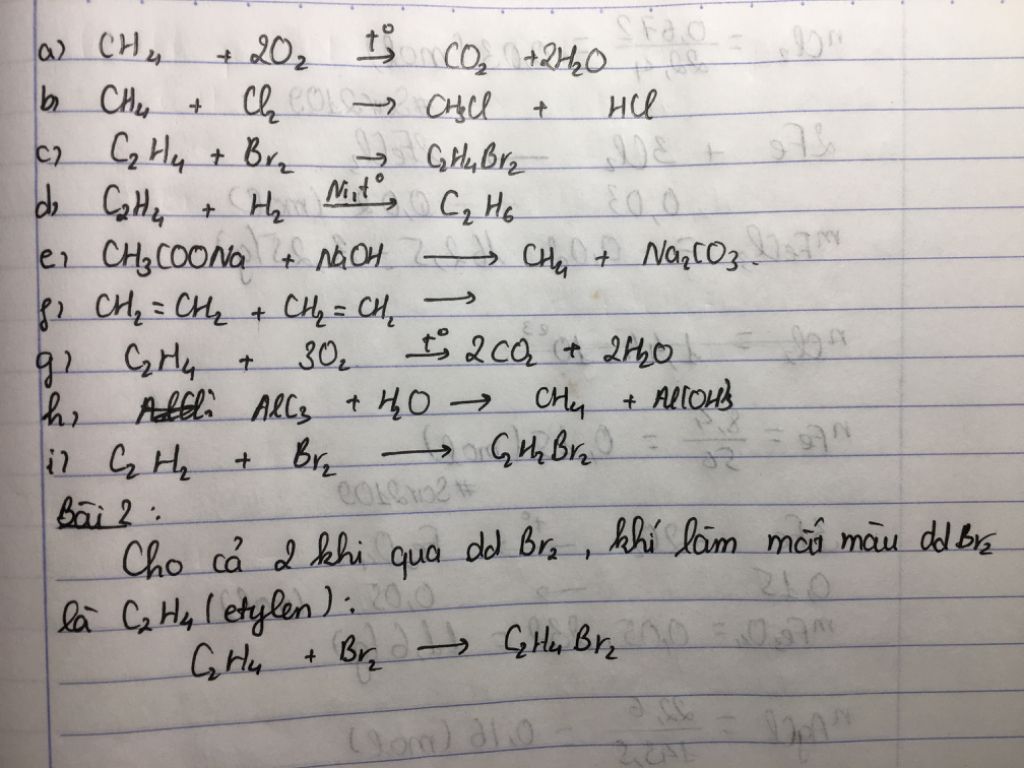 a) CH4 + 2O2 t° → CO2 + 2H2O
b) CH4 + Cl2 → CH3Cl + HCl
c) C2H4 + Br2 → C2H4Br2
d) C2H4 + H2 Ni,t° → C2H6
e) CH3COONa + NaOH → CH4 + Na2CO3.
f) CH2 = CH2 + CH2 = CH2 →
g) C2H4 + 3O2 t° → 2CO2 + 2H2O
h) AlC3 + H2O → CH4 + Al(OH)3
i) C2H2 + Br2 → C2H2Br2
Bài 2 :
Cho cả 2 khi qua dd Br2 , khí làm mất màu dd Br2
là C2H4 (etylen) :
C2H4 + Br2 → C2H4Br2